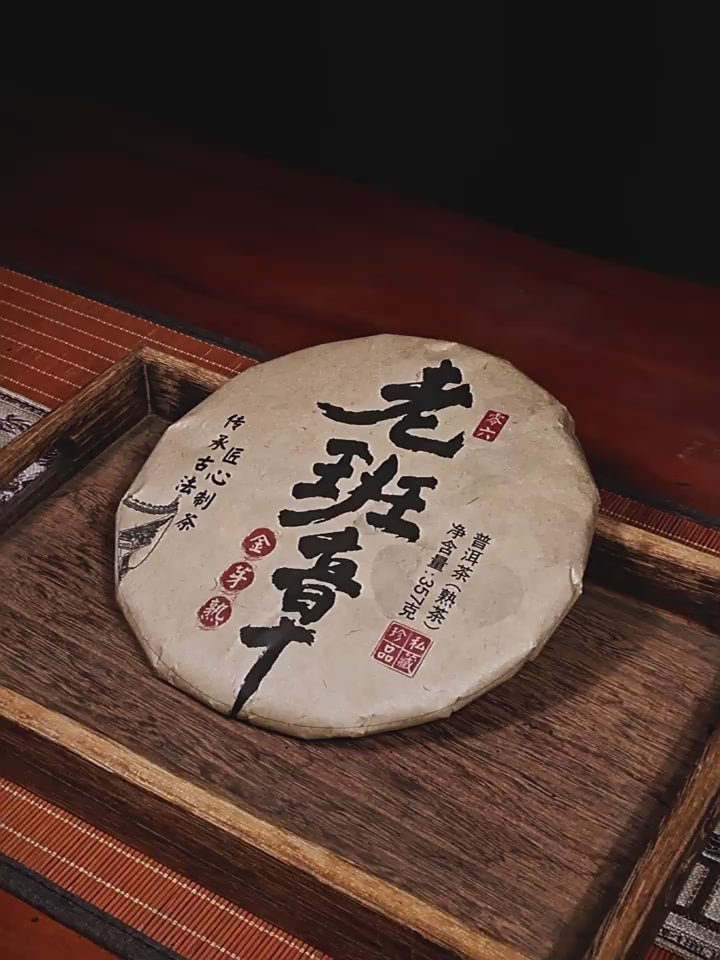 老班章
零六
普洱茶（熟茶）
净含量:357克
私藏
珍品
金芽熟
传承古法
匠心制茶